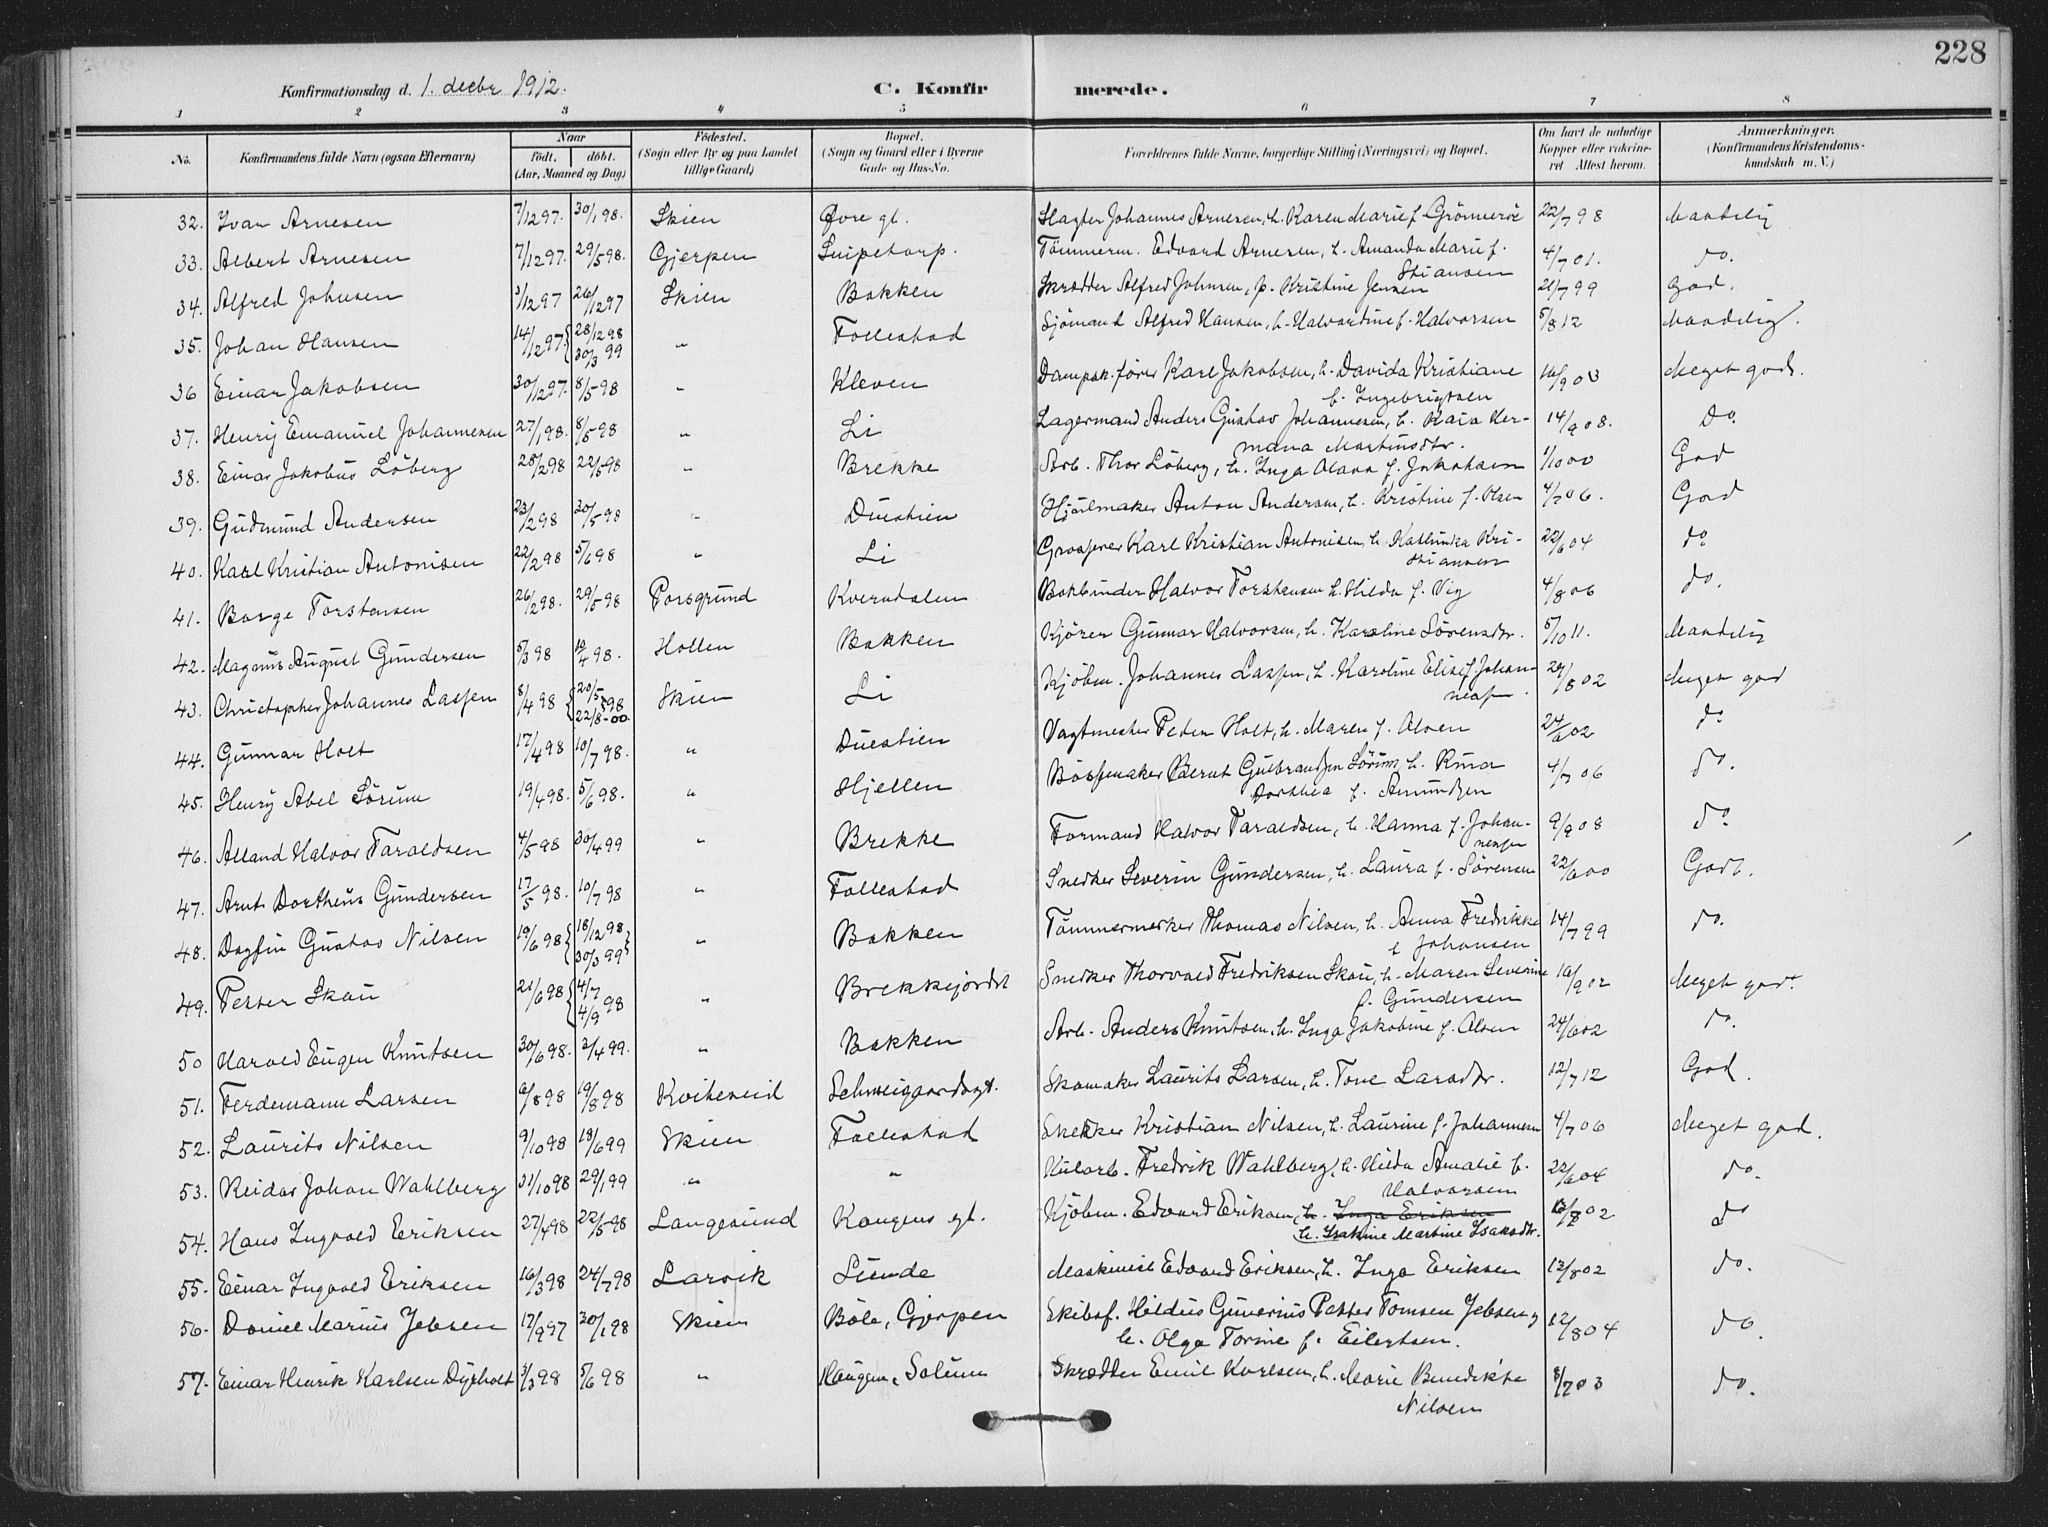 228
Konfirmationsdag d. 1. decbr 1912. C. Konfirmerede.
1 2 3 4 5 6 7 8
No. Konfirmandens fulde Navn (ogsaa Efternavn) Naar födt. döbt. (Aar, Maaned og Dag) Födested. (Sogn eller By og paa Landet tillige Gaard) Bopæl. (Sogn og Gaard eller i Byerne Gade og Hus-No. Forældrenes fulde Navne, borgerlige Stilling (Næringsvei) og Bopæl. Om havt de naturlige Kopper eller vakcineret Attest herom. Anmærkninger. (Konfirmandens Kristendomskundskab m. V.)
32. Ivar Arnesen 7/12 97. 30/1 98. Skien Øvre gt. Slagter Johannes Arnesen, h. Karen Marie f. Grönneröe 22/7 98 Maadelig
33. Albert Arnesen 7/12 97. 29/5 98. Gjerpen Snipetorp. Tömmerm. Edvard Arnesen, h. Amanda Marie f. Stiansen 4/7 01. do.
34. Alfred Johnsen 3/12 97 26/12 97 Skien Bakken Skrædder Alfred Johnsen, p. Kristine Jensen 21/7 99 God.
35. Johan Hansen 14/12 97. { 28/12 98 30/3 99 " Follestad Sjömand Alfred Hansen, h. Halvardine f. Halvorsen 5/8 12 Maadelig.
36 Einar Jakobsen 30/12 97. 8/5 98 " Kleven Dampsk.förer Karl Jakobsen, h. Davida Kristiane f. Ingebrigtsen 16/9 03 Meget god.
37. Henry Emanuel Johannesen 27/1 98. 8/5 98 " Li Lagermand Anders Gustav Johannesen, h. Kaia Hermana Martinsdtr. 14/9 08. Do.
38. Einar Jakobus Löberg 28/2 98 22/5 98 " Brekke Arb. Thor Löberg, h. Inga Olava f. Jakobsen 1/10 00 God
39. Gudmund Andersen 23/2 98 20/5 98 " Duestien Hjulmaker Anton Andersen, h. Kristine f. Olsen 4/7 06. God
40. Karl Kristian Antonisen 22/2 98 5/6 98 " Li Grosserer Karl Kristian Antonisen, h. Kathinka Kristiansen 22/6 04 do
41. Borge Torstensen 26/2 98. 29/5 98 Porsgrund Kverndalen Bokbinder Halvor Torstensen h. Hilda f. Vig 4/8 06 do.
42. Magnus August Gundersen 5/3 98 10/4 98. Hollen Bakken Kjörer Gunnar Halvorsen, h. Karoline Sörensdtr. 5/10 11. Maadelig
43. Christopher Johannes Lassen 8/4 98 { 20/5 98 22/8-00. Skien Li Kjöbm. Johannes Lassen, h. Karoline Elise f. Johannessen. 20/8 02 Meget god
44. Gunnar Holt 17/4 98 10/7 98. " Duestien Vagtmester Peder Holt, h. Maren f. Olsen 24/6 02 do
45. Henry Abel Sörum 19/4 98. 5/6 98. " Hjellen Bössemaker Bernt Gulbrandsen Sörum, h. Runa Dorthea f. Amundsen 4/7 06 do.
46. Alland Halvor Taraldsen 4/5 98 30/4 99 " Brekke Formand Halvor Taraldsen, h. Hanna f. Johannessen 9/9 08 do
47. Arnt Dortheus Gundersen 17/5 98. 10/7 98 " Follestad Snedker Severin Gundersen, h. Laura f. Sörensen 22/6 00 Godt.
48. Dagfin Gustav Nilsen 19/6 98 { 18/12 98 30/3 99 } " Bakken Tömmermerker Thomas Nilsen, h. Anna Fredrikke f Johansen 14/7 99 do.
49. Petter Skau 21/6 98 { 4/7 4/9 98 " Brekkejordet Snedker Thorvald Fredriksen Skau, h. Maren Severine f. Gundersen 10/9 02 Meget god.
50 Harald Eugen Knutsen 30/6 98. 2/4 99. " Bakken Arb. Anders Knutsen, h. Inga Jakobine f. Olsen 24/6 02 do.
51. Ferdemann Larsen 6/8 98 19/8 98 Kviteseid Schweigaardsgt. Skomaker Laurits Larsen, h. Tone Larsdtr. 12/7 12 God.
52. Laurits Nilsen 9/10 98 18/6 99 Skien Follestad Snekker Kristian Nilsen, h. Laurine f. Johannesen 4/7 06 Meget god.
53. Reidar Johan Wahlberg 31/10 98 29/1 99 " " Kularb. Fredrik Wahlberg, h. Hilda Amalie f. Halvorsen 22/6 04 do.
54. Hans Ingvald Eriksen 27/4 98 22/5 98 Langesund Kongens gt. Kjöbm. Edvard Eriksen, h. Inga Eriksen h. Isakine Martine Isaksdtr. 13/8 02 do
55. Einar Ingvald Eriksen 16/3 98 24/7 98 Larvik Lunde Maskinist Edvard Eriksen, h. Inga Eriksen 13/8 02 do.
56. Daniel Marius Jebsen 17/9 97 30/1 98 Skien Böle, Gjerpen Skibsf. Hildus Guverius Petter Tomsen Jebsen og h. Olga Torine f. Eilertsen. 12/8 04 do.
57. Einar Henrik Karlsen Dyrholt 3/3 98 5/6 98 " Haugen, Solum Skrædder Emil Karlsen, h. Marie Benedikte Nilsen 8/7 03 do.